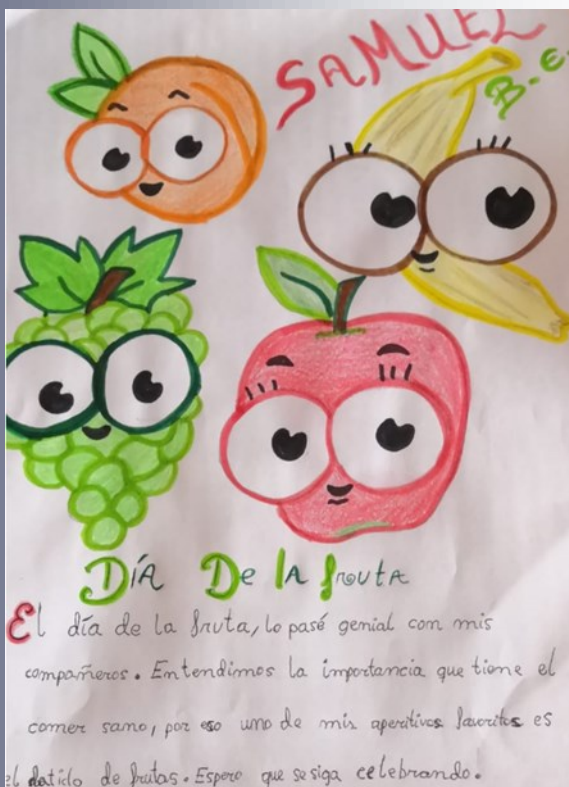 SAMUEL
B.E.
DÍA De lA fruta
El día de la fruta, lo pasé genial con mis
compañeros. Entendimos la importancia que tiene el
comer sano, por eso uno de mis aperitivos favoritos es
el batido de frutas. Espero que se siga celebrando.